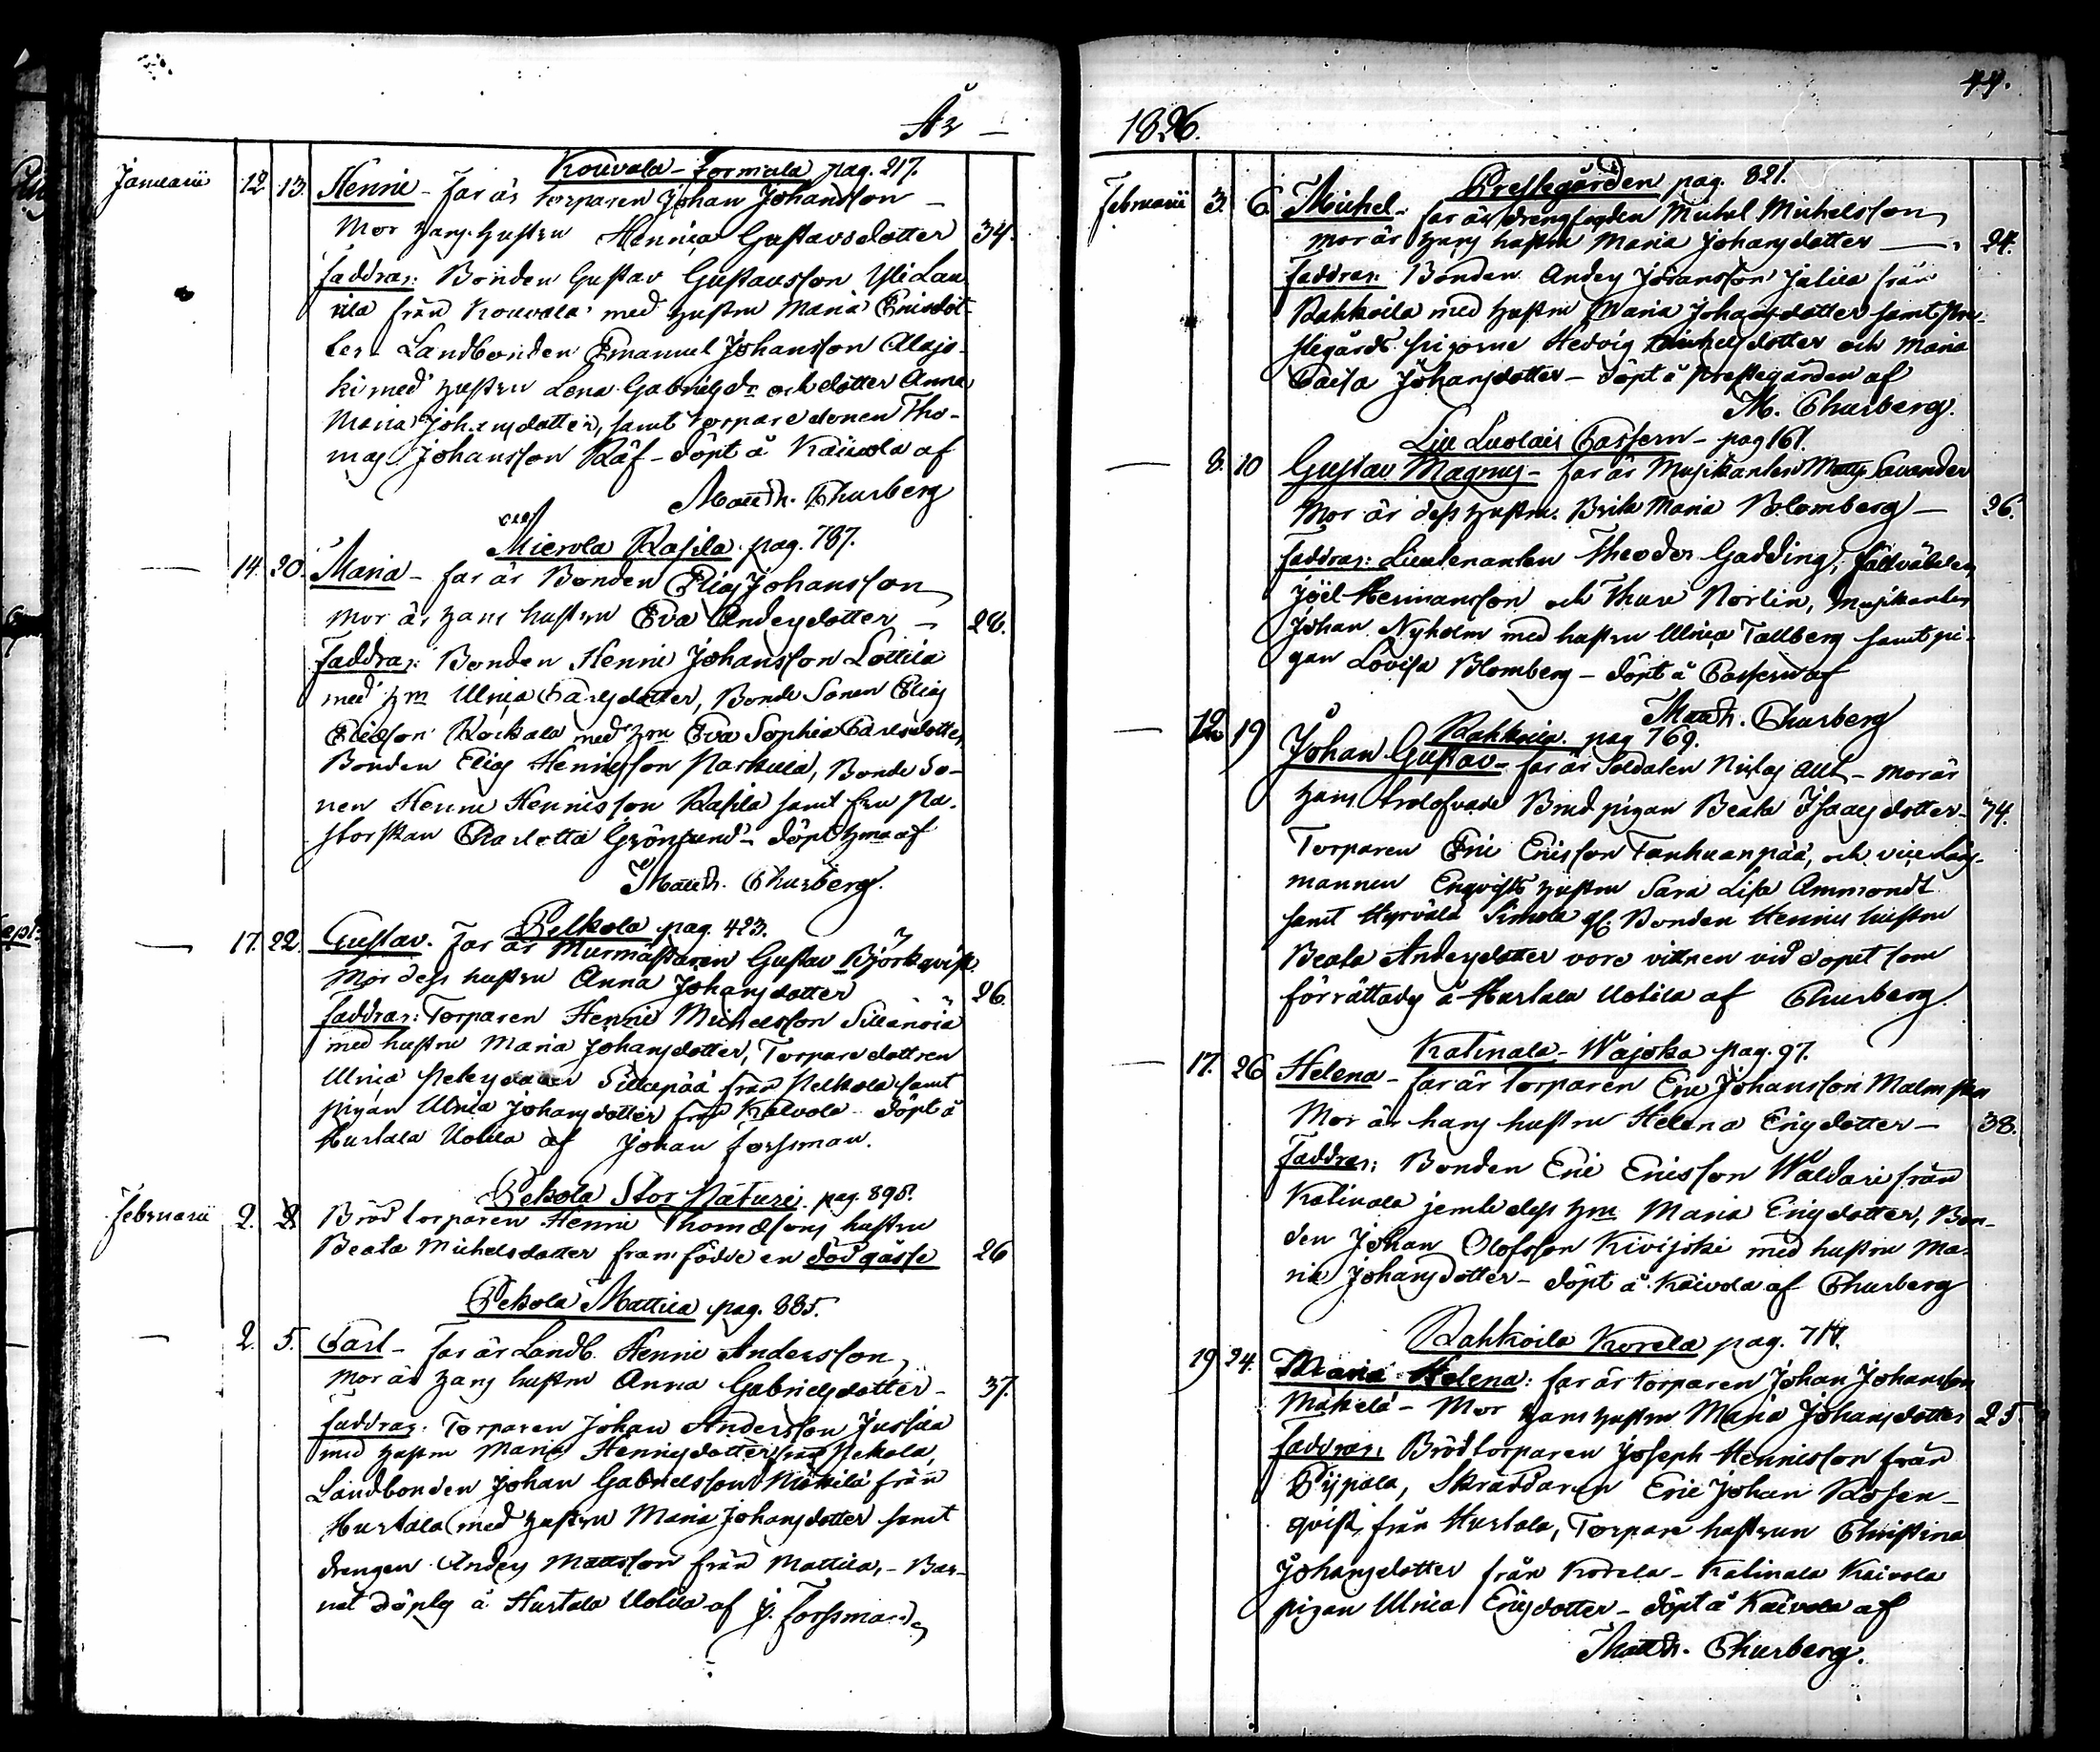 År —
Januarii 12 13. Kouvola - Formula pag. 217.
Henric - far är torparen Johan Johansson —
Mor hans hustru Henrica Gustavsdotter 34.
faddrar: Bonden Gustav Gustavsson Yli Lau
rila från Kouvola med hustru Maria Ericsdot-
ter - Landbonden Emanuel Johansson Alajo-
ki med hustru Lena Gabrielsdr och dotter Anna
Maria Johansdotter, samt torparesonen Tho-
mas Johansson Räf - döpt å Kaivola af
Matth. Churberg
Mierola Rasila pag. 787.
— 14. 20. Maria - far är Bonden Elias Johansson
Mor är hans hustru Eva Andersdotter — 28.
Faddrar: Bonden Henric Johansson Lottila
med hm Ulrica Carlsdotter, Bonde Sonen Elias
Elieson Rockala med hm Eva Sophia Carlsdotter,
Bonden Elias Henricsson Paskula, Bonde So-
nen Henric Henricsson Rasila samt fru Pa-
storskan Charlotta Grönlund - döpt hma af
Matth. Churberg.
Pelkola pag. 423.
— 17. 22. Gustav. Far är Murmästaren Gustav Björkqvist.
Mor dess hustru Anna Johansdotter 26.
faddrar: Torparen Henric Michelsson Sillänoiä
med hustru Maria Johansdotter, Torpare dottren
Ulrica Petersdotter Sillanpää från Pelkola samt
pigan Ulrica Johansdotter från Kaivola - döpt å
Hurtala Uotila af Johan Forssman.
Pekola Stor Naturi pag. 898.
Februarii 2. 2. Brödtorparen Henric Thomæsons hustru
Beata Michelsdotter framfödde en död gåsse 26
Pekola Mattila pag. 885.
— 2. 5. Carl - far är Landb. Henric Andersson,
mor är hans hustru Anna Gabrielsdotter - 37.
faddrar. Torparen Johan Andersson Jussila
med hustru Maria Henricsdotter från Pekola,
Landbonden Johan Gabrielsson Mäkilä från
Hurtala med hustru Maria Johansdotter samt
drengen Anders Mattsson från Mattila, - Bar-
net döptes å Hurtala Uotila af J. Forssman
44.
1826.
Prestegården pag. 821.
Februarii 3. 6. Michel - far är drengfogden Michel Michelsson
mor är hans hustru Maria Johansdotter — 24.
Faddrar: Bonden Anders Johansson Jutila från
Rahkoila med hustru Maria Johansdotter samt Pre-
stegårds pigorne Hedvig Michelsdotter och Maria
Caisa Johansdotter - döpt å Prestegården af
M. Churberg.
Lill Luolais Cassern - pag 161.
— 8. 10 Gustav Magnus - far är Musikanten Matts Savander
Mor är dess hustru Brita Maria Blomberg — 26.
Faddrar: Lieutenanten Theodor Gadding, Fältväbeln
Joel Hermansson och Thure Norlin, Musikanten
Johan Nyholm med hustru Ulrica Tallberg samt pi-
gan Lovisa Blomberg - döpt å Cassern af
Matth. Churberg
Rahkoila. pag 769.
— 12 19 Johan Gustav - far är Soldaten Niclas Ahl - mor är
hans trolofvade Brud pigan Beata Isaacsdotter - 34.
Torparen Eric Ericsson Tanhuanpää, och vice Läns-
mannen Enqvists hustru Sara Lisa Ammondt
samt Hyrvälä Simola gl. Bonden Henrics hustru
Beata Andersdotter voro vittnen vid dopet som
förrättades å Hurtala Uotila af Churberg.
Katinala - Wajoka pag. 97.
— 17. 26 Helena - far är torparen Eric Johansson Malmsten
Mor är hans hustru Helena Ericsdotter — 38.
Faddrar: Bonden Eric Ericsson Waldari från
Katinala jemte dess hm Maria Ericsdotter, Bon-
den Johan Olofsson Kivijoki med hustru Ma-
ria Johansdotter - döpt å Kaivola af Churberg
Rahkoila Korela pag. 717.
19 24. Maria Helena: far är torparen Johan Johansson
Mäkelä - Mor hans hustru Maria Johansdotter 25
Faddrar: Brödtorparen Joseph Henricsson från
Pijpala, Skräddaren Eric Johan Rosen-
qvist, från Hurtala, Torpare hustrun Christina
Johansdotter från Korela - Katinala Kaivola
pigan Ulrica Ericsdotter - döpt å Kaivola af
Matth. Churberg.